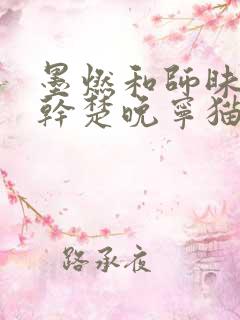 墨燃和師昧
幹楚晚寧猫
路承夜